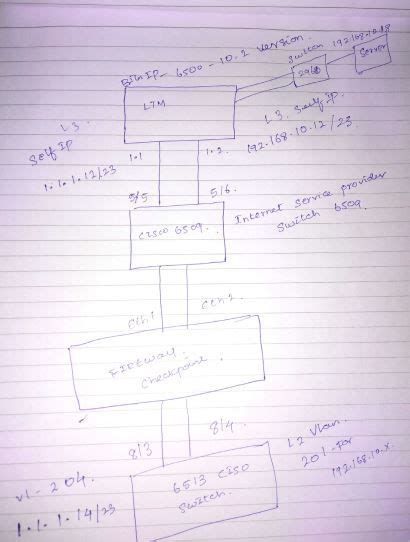 BigIP - 6500 - 10.2 version.
Switch 192.168.10.18
2960
Server
LTM
L3.
Self IP
1.1.1.12/23
L3. Self IP.
192.168.10.12/23
1.1
1.2
5/5
5/6
Cisco 6509.
Internet Service provider
Switch 6509
eth1
eth2
Firewall
Checkpoint.
8/3
8/4
6513 Cisco
Switch.
L2 Vlan.
201 - for
192.168.10.x.
vl - 204.
1.1.1.14/23